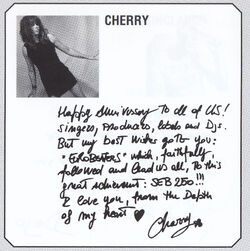 CHERRY
Happy Anniversary to all of US!
singers, producers, labels and Djs.
But my best wishes go to you:
"EUROBEATERS" which, faithfully,
followed and lead us all, to this
great achievement: SEB 250!!!
I love you, from the Depth
of my heart
Cherry